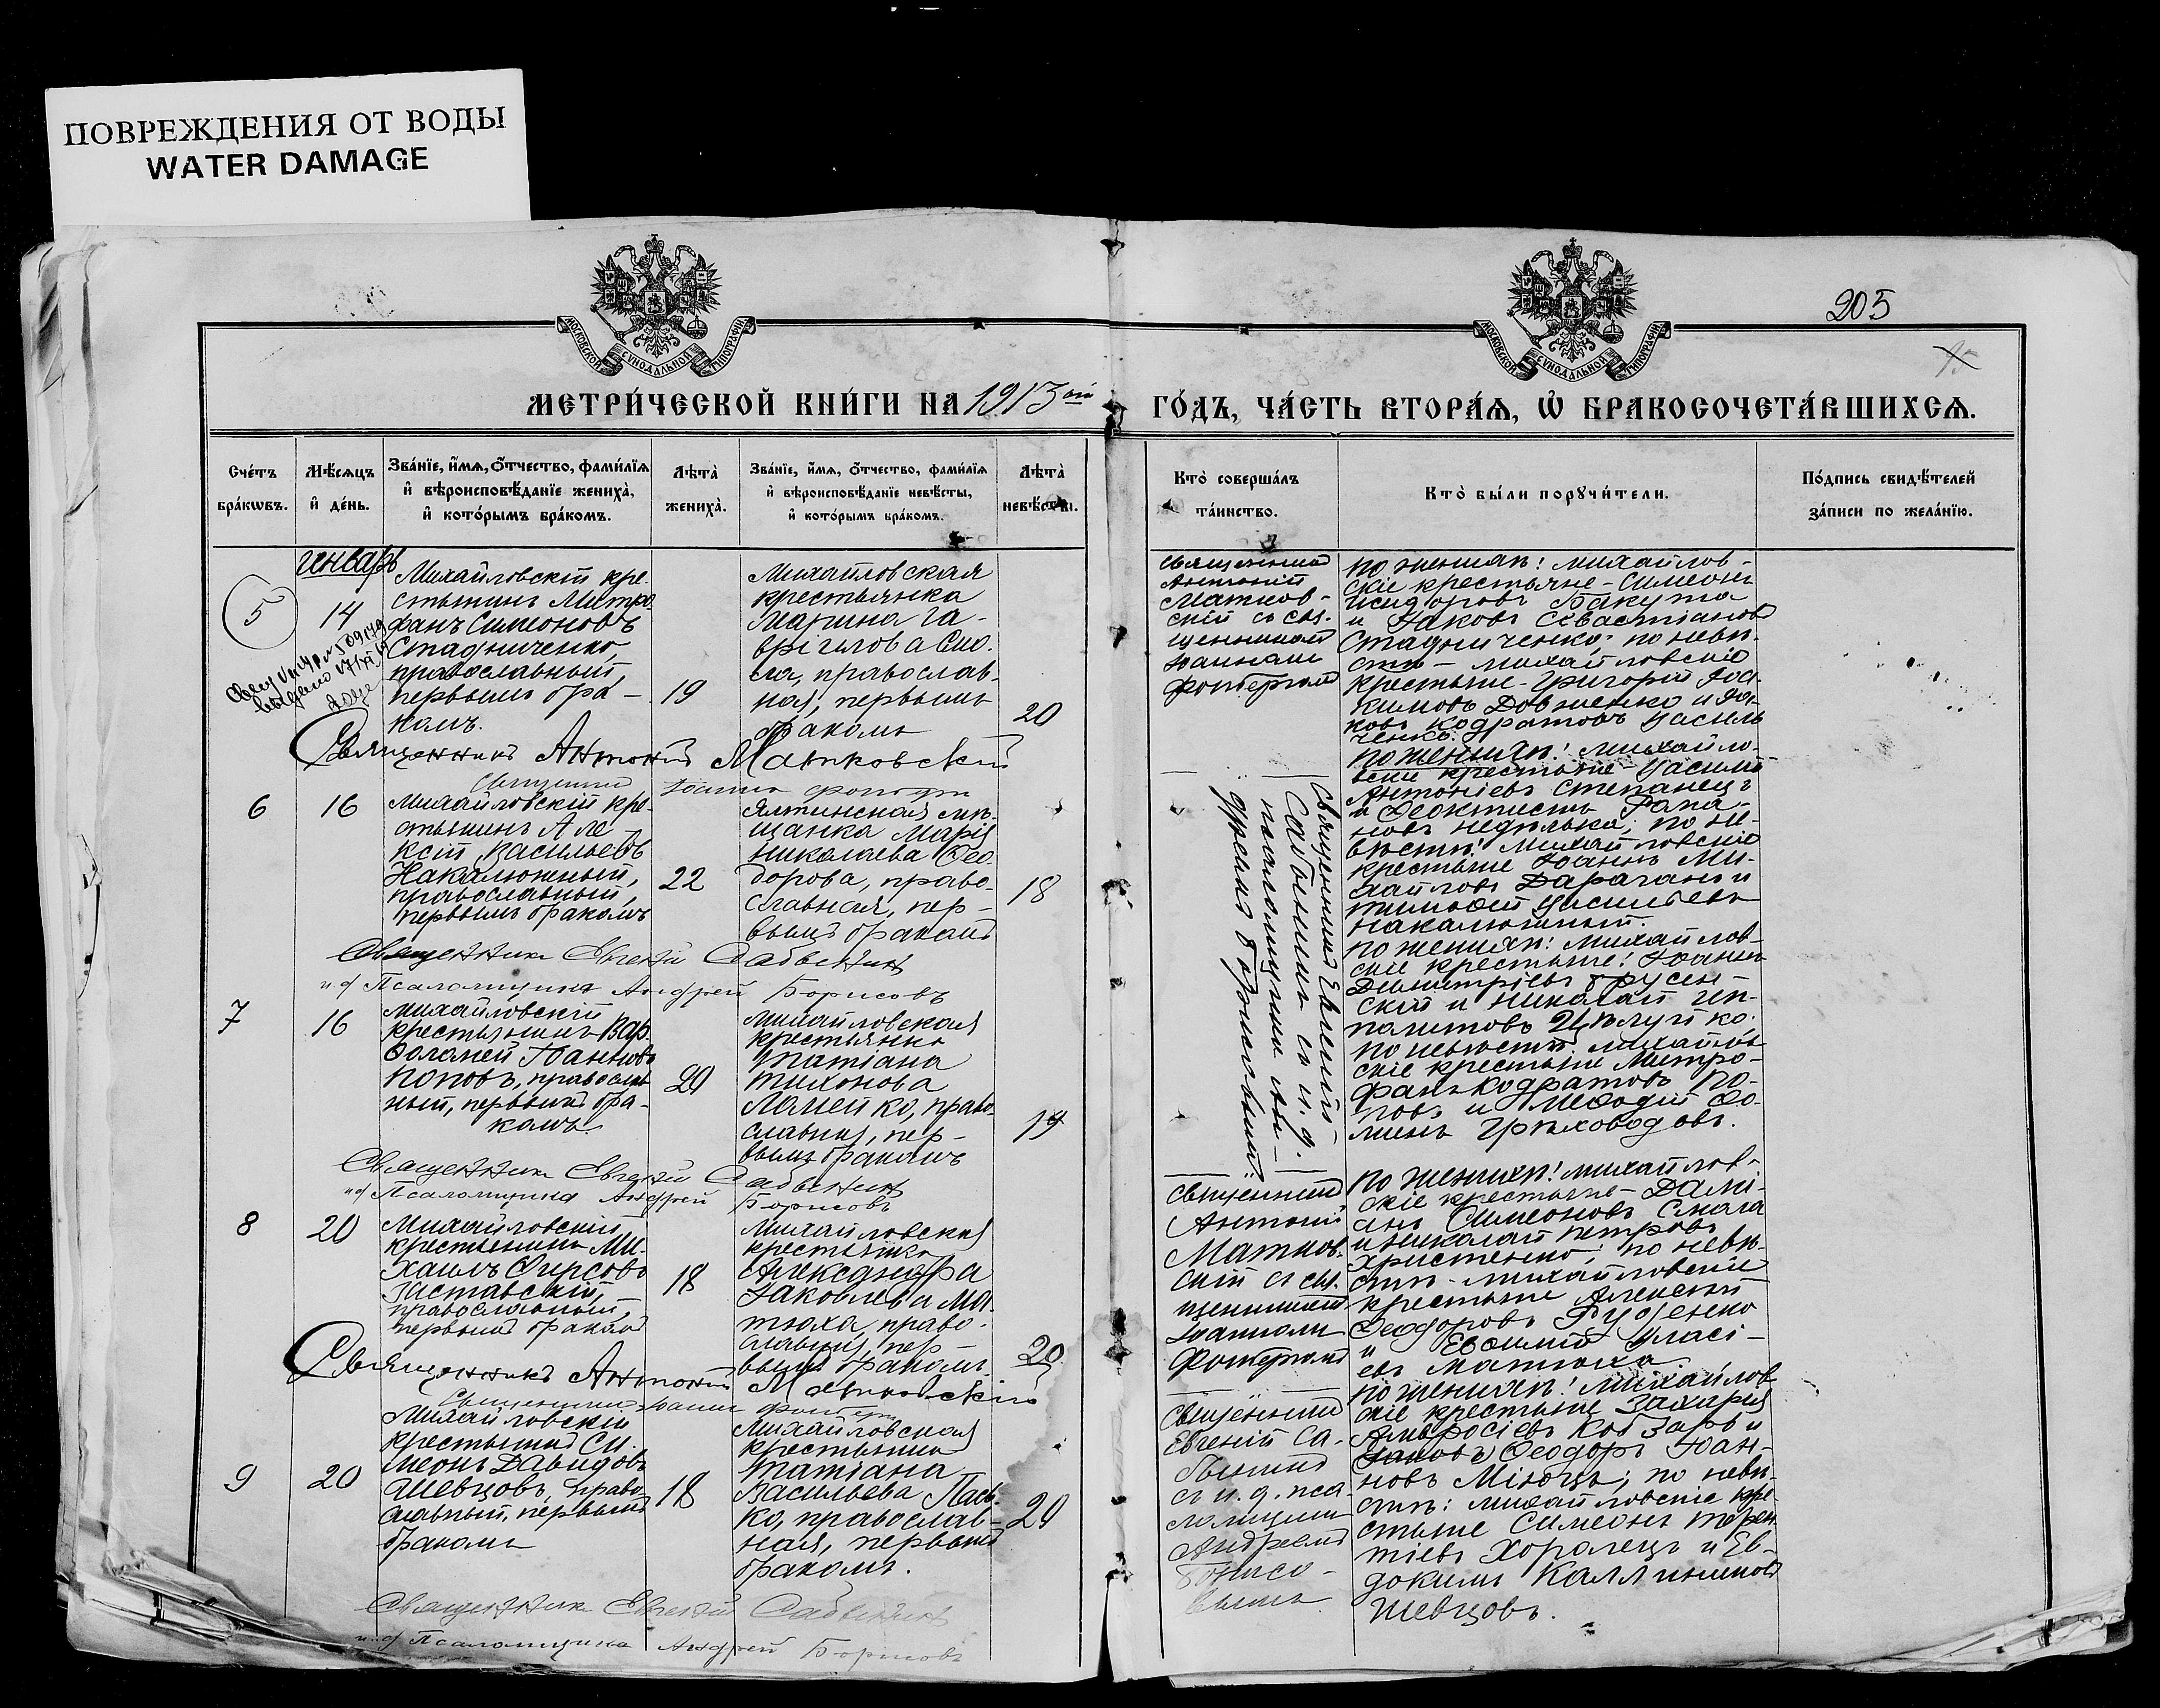 ПОВРЕЖДЕНИЯ ОТ ВОДЫ
WATER DAMAGE
МОСКОВСКОЙ СѴНОДАЛЬНОЙ ТИПОГРАФІИ
МОСКОВСКОЙ СѴНОДАЛЬНОЙ ТИПОГРАФІИ
205
15
МЕТРИ́ЧЕСКОЙ КНИ́ГИ НА 1913ый ГО́ДЪ, ЧА́СТЬ ВТОРА́Ѧ, Ѽ БРАКОСОЧЕТА́ВШИХСѦ.
Сче́тъ бра́кѡвъ.
Мѣ́сѧцъ и҆ де́нь.
Зва́нїе, и҆́мѧ, ѻ҆́тчество, фами́лїѧ
и҆ вѣроисповѣ́данїе жениха̀,
и҆ кото́рымъ бра́комъ.
Лѣта̀ жениха̀.
Зва́нїе, и҆́мѧ, ѻ҆́тчество, фами́лїѧ
и҆ вѣроисповѣ́данїе невѣ́сты,
и҆ кото́рымъ бра́комъ.
Лѣта̀ невѣ́сты.
Кто̀ соверша́лъ та́инство.
Кто̀ бы́ли порꙋчи́тели.
По́дпись свидѣ́телей за́писи по жела́нїю.
Январь
5
14
Михайловскій кре-
стьянинъ Митро-
фанъ Симеоновъ
Стадниченко,
православный,
первымъ бра-
комъ.
19
Михайловская
крестьянка
Марина Га-
врiилова
православ-
ная, первымъ
бракомъ
20
Священникъ
Антоній
Матков-
скій съ свя-
щенникомъ
Іоанномъ
по женихѣ: Михайлов-
скіе крестьяне - Симеонъ
Исидоровъ Бакута
и Іаковъ Севастіановъ
Стадниченко; по невѣ-
стѣ - Михайловскіе
крестьяне - Григорій Іоа-
кимовъ Довженко и Іа-
ковъ Кодратовъ Василь
ченко.
Священникъ Антоній Матковскій
Священникъ Іоаннъ
6
16
Михайловскій кре-
стьянинъ Але
ксій Васильевъ
Накалюжный,
православный,
первымъ бракомъ
22
Ялтинская мѣ-
щанка Марія
Николаева Ѳео-
дорова, право-
славная, пер-
вымъ бракомъ
18
Священникъ Евгеній
Савѣнинъ съ и. д.
псаломщикомъ Ан-
дреемъ Борисовымъ:
по женихѣ: Михайло-
вскіе крестьяне - Василій
Антоніевъ Степанецъ
и Ѳеоктистъ
Недилька; по не-
вѣстѣ: Михайловскіе
крестьяне Іоаннъ Ми-
хайловъ Дараганъ и
Тимоѳей Васильевъ
Накалюжный.
Священникъ Евгеній Савѣнинъ
и.д Псаломщика Андрей Борисовъ
7
16
Михайловскій
крестьянинъ Вар-
ѳоломей Іоанновъ
Поповъ, православ
ный, первымъ бра-
комъ.
20
Михайловская
крестьянка
Татіана
Тихонова
Ломейко, право-
славная, пер-
вымъ бракомъ
19
по женихѣ: Михайлов-
скіе крестьяне: Іоаннъ
Димитріевъ
скій и Николай Ип-
политовъ
по невѣстѣ: Михайлов
скіе крестьяне Митро-
фанъ Кодратовъ По-
повъ и Меѳодій Ѳо-
минъ Грѣховодовъ.
Священникъ Евгеній Савѣнинъ
и.д Псаломщика Андрей Борисовъ
8
20
Михайловскій
крестьянинъ Ми-
хаилъ Фирсовъ
Заставскій,
православный,
первымъ бракомъ
18
Михайловская
крестьянка
Александра
Іаковлева Ма-
тюха, право-
славная, пер-
вымъ бракомъ.
20
Священникъ
Антоній
Матков-
скій съ свя-
щенникомъ
Іоанномъ
по женихѣ: Михайлов-
скіе крестьяне - Дамі-
анъ Симеоновъ Смага
и Николай Петровъ
Христенко; по невѣ-
стѣ - Михайловскіе
крестьяне Алексій
Ѳеодоровъ Руденко
и Евѳимій Власі-
евъ Матюха.
Священникъ Антоній Матковскій
Священникъ Іоаннъ
9
20
Михайловскій
крестьянинъ Си-
меонъ Давидовъ
Шевцовъ, право-
славный, первымъ
бракомъ
18
Михайловская
крестьянка
Татіана
Васильева Пась-
ко, православ-
ная, первымъ
бракомъ.
20
Священникъ
Евгеній Са-
вѣнинъ
съ и. д. пса-
ломщика
Андреемъ
Борисо-
вымъ
по женихѣ: Михайлов
скіе крестьяне Захарія
Амвросіевъ Кобзарь и
Ѳеодоръ Іоан-
новъ Мізюсъ; по невѣ-
стѣ: Михайловскіе кре-
стьяне Симеонъ Терен-
тіевъ Хоралецъ и Ев-
докимъ Каллиниковъ
Шевцовъ.
Священникъ Евгеній Савѣнинъ
и.д Псаломщика Андрей Борисовъ